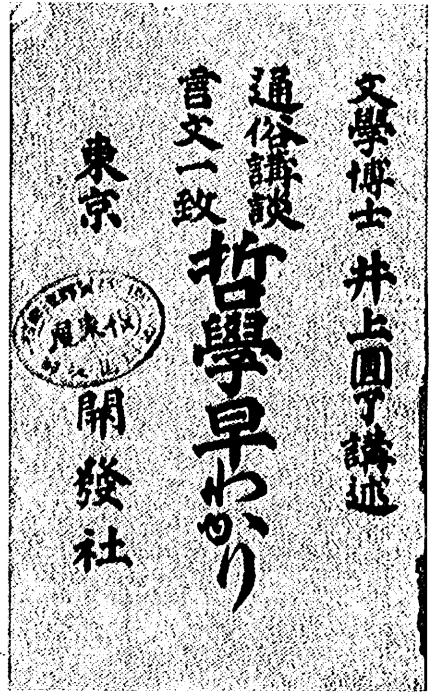 文學博士 井上圓了講述
通俗講談
言文一致
哲學早わかり
東京 開發社